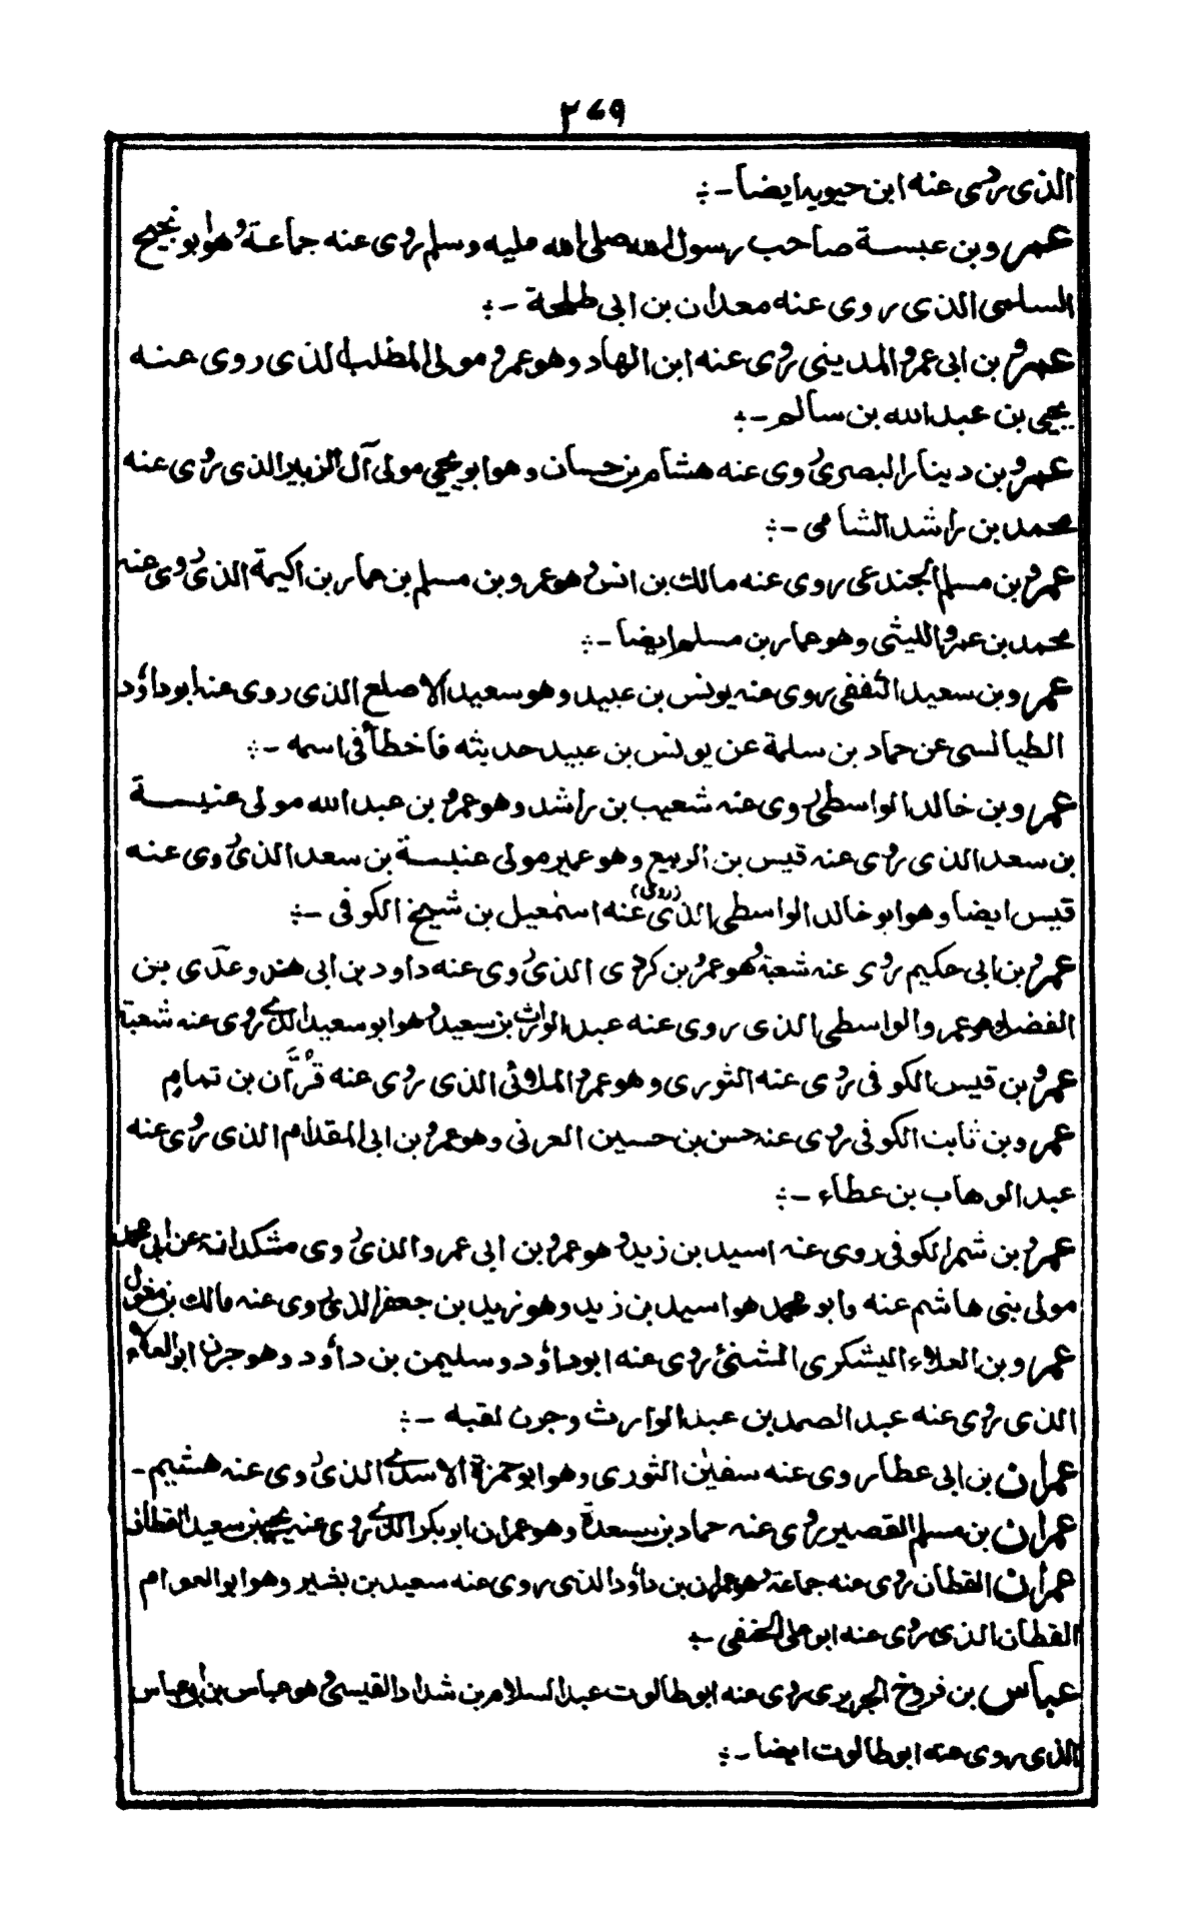 ٢٦٩
الذى روى عنه ابن حيويه ايضا -:
عمرو بن عبسة صاحب رسول الله صلى الله عليه وسلم روى عنه جماعة وهو ابو نجيح
السلمى الذى روى عنه معدان بن ابى طلحة -:
عمرو بن ابى عمرو المدينى روى عنه ابن الهاد وهو عمرو مولى المطلب الذى روى عنه
يحيى بن عبد الله بن سالم -:
عمرو بن دينار البصرى روى عنه هشام بن حسان وهو ابو يحيى مولى آل الزبير الذى روى عنه
محمد بن راشد الشامى -:
عمرو بن مسلم الجندعى روى عنه مالك بن انس وهو عمرو بن مسلم بن عمار بن اكيمة الذى روى عنه
محمد بن عمرو الليثى وهو عمار بن مسلم ايضا -:
عمرو بن سعيد الثقفى روى عنه يونس بن عبيد وهو سعيد الاصلع الذى روى عنه ابو داؤد
الطيالسى عن حماد بن سلمة عن يونس بن عبيد حديثه فاخطأ فى اسمه -:
عمرو بن خالد الواسطى روى عنه شعيب بن راشد وهو عمرو بن عبد الله مولى عنبسة
بن سعد الذى روى عنه قيس بن الربيع وهو عمير مولى عنبسة بن سعد الذى روى عنه
قيس ايضا وهو ابو خالد الواسطى الذى (روى) عنه اسمٰعيل بن شيخ الكوفى -:
عمرو بن ابى حكيم روى عنه شعبة وهو عمرو بن كردى الذى روى عنه داود بن ابى هند وعدّى بن
الفضل وهو عمرو الواسطى الذى روى عنه عبد الوارث بن سعيد وهو ابو سعيد الذى روى عنه شعبة
عمرو بن قيس الكوفى روى عنه الثورى وهو عمرو الملائى الذى روى عنه قُرّان بن تمام
عمرو بن ثابت الكوفى روى عنه حسن بن حسين العرنى وهو عمرو بن ابى المقدام الذى روى عنه
عبد الوهاب بن عطاء -:
عمرو بن شمر الكوفى روى عنه اسيد بن زيد وهو عمرو بن ابى عمرو الذى روى مشكدانة عن ابى محمد
مولى بنى هاشم عنه وابو محمد هو اسيد بن زيد وهو زيد بن جعفر الذى روى عنه مالك بن مغول
عمرو بن العلاء اليشكرى الشنئ روى عنه ابو داؤد وسليمن بن داؤد وهو جرن ابو العلاء
الذى روى عنه عبد الصمد بن عبد الوارث وجرن لقبه -:
عمران بن ابى عطار روى عنه سفيٰن الثورى وهو ابو حمزة الاسدى الذى روى عنه هشيم -
عمران بن مسلم القصير روى عنه حماد بن مسعدة وهو عمران ابو بكر الذى روى عنه يحيى بن سعيد القطان
عمران القطان روى عنه جماعة وهو عمران بن داؤد الذى روى عنه سعيد بن بشير وهو ابو العوام
القطان الذى روى عنه ابو على الحنفى -:
عباس بن فروخ الجريرى روى عنه ابو طالوت عبد السلام بن شداد القيسى وهو عباس بن ابى عباس
الذى روى عنه ابو طالوت ايضا -: